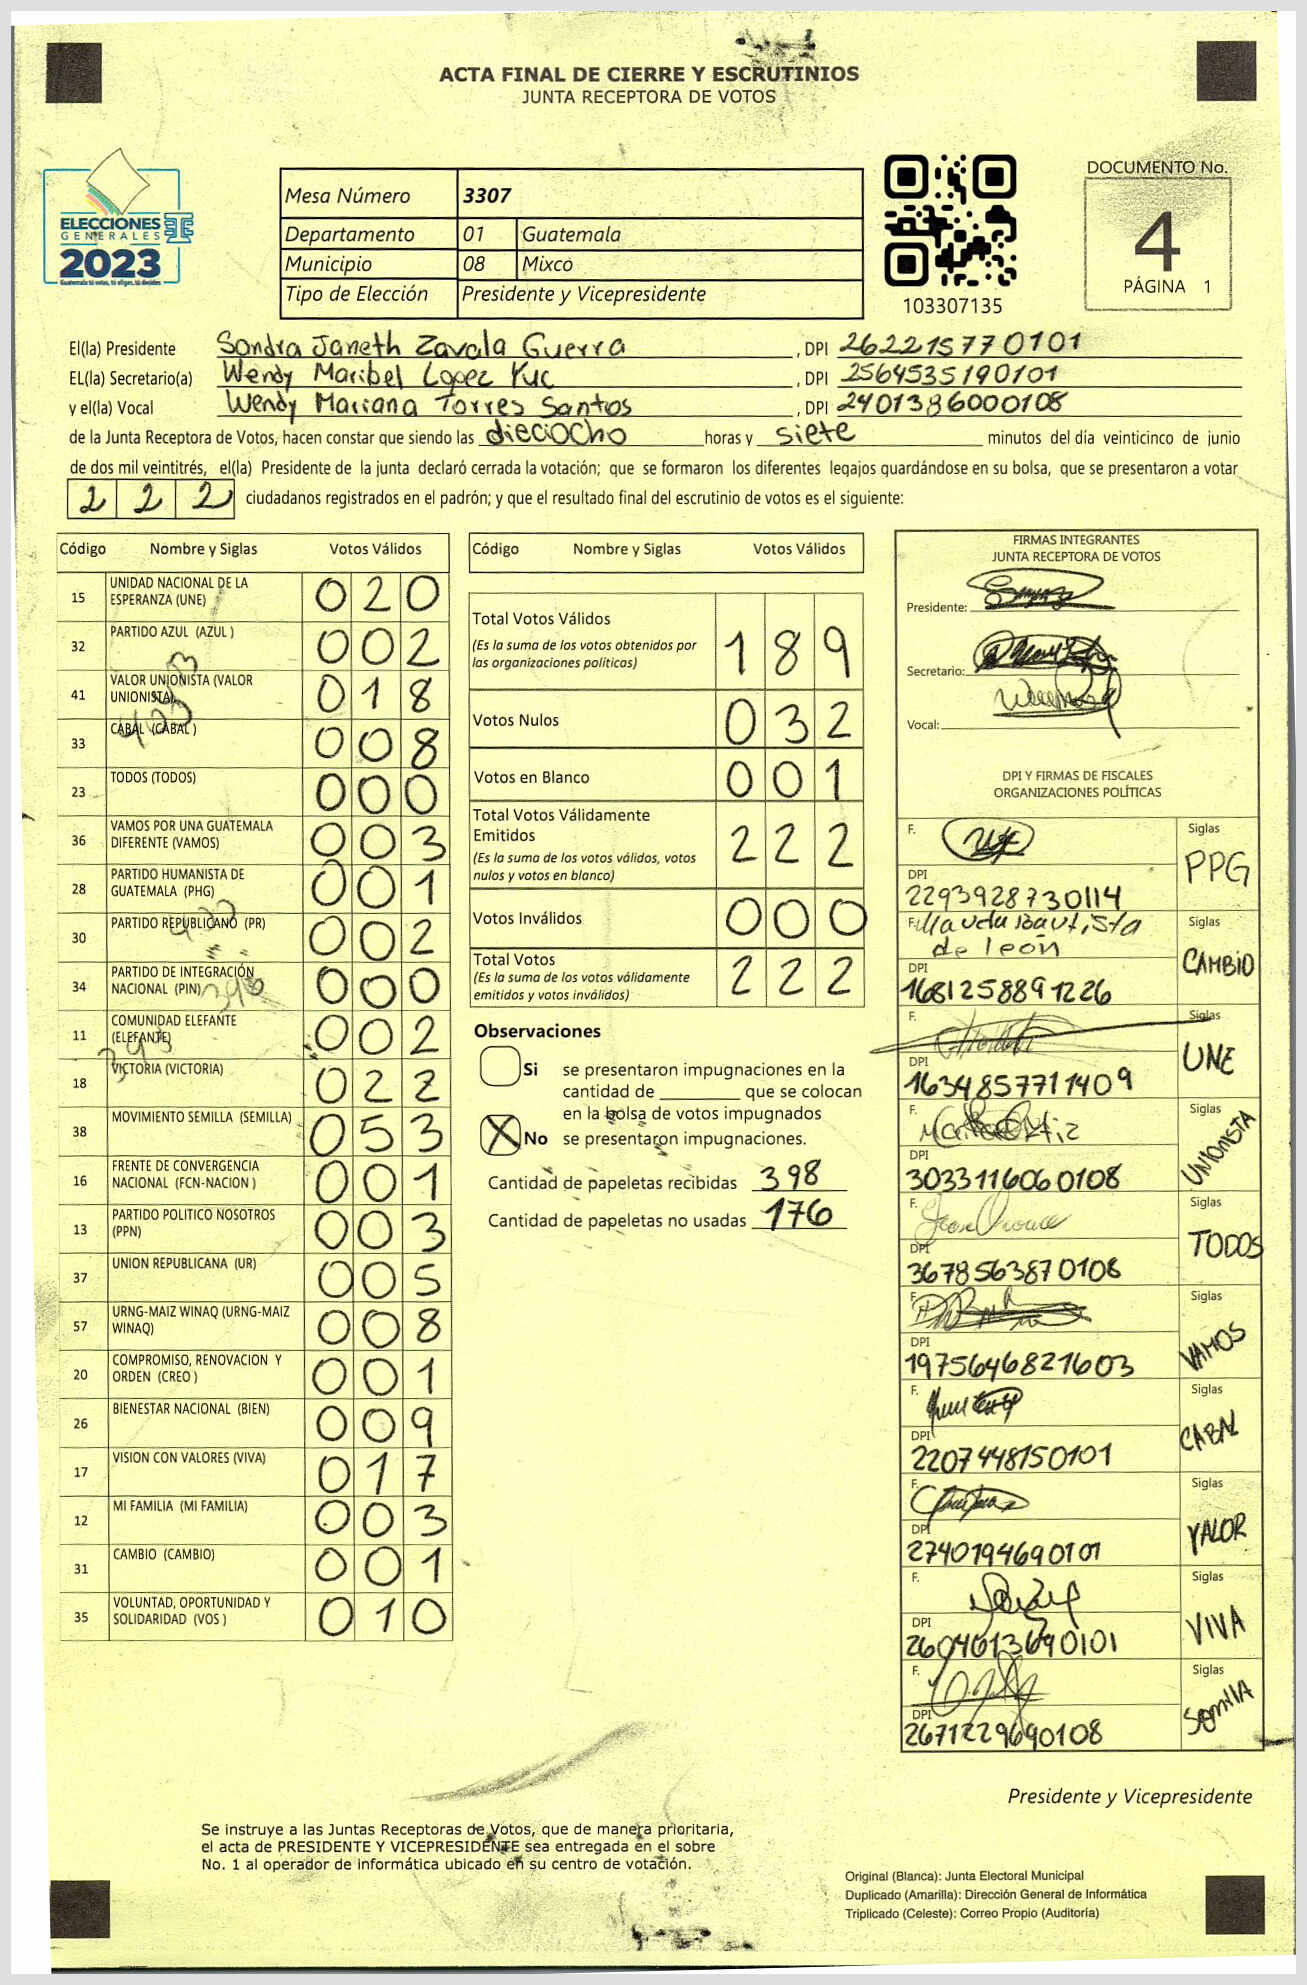 ACTA FINAL DE CIERRE Y ESCRUTINIOS
JUNTA RECEPTORA DE VOTOS
ELECCIONES
GENERALES
2023
Guatemala tú votas, tú eliges, tú decides
Mesa Número 3307
Departamento 01 Guatemala
Municipio 08 Mixco
Tipo de Elección Presidente y Vicepresidente
103307135
DOCUMENTO No.
4
PÁGINA 1
El(la) Presidente Sandra Janeth Zavala Guerra , DPI 262215770101
EL(la) Secretario(a) Wendy Maribel Lopez Yuc , DPI 2564535190101
y el(la) Vocal Wendy Mariana Torres Santos , DPI 2401386000108
de la Junta Receptora de Votos, hacen constar que siendo las dieciocho horas y siete minutos del día veinticinco de junio
de dos mil veintitrés, el(la) Presidente de la junta declaró cerrada la votación; que se formaron los diferentes legajos guardándose en su bolsa, que se presentaron a votar
222 ciudadanos registrados en el padrón; y que el resultado final del escrutinio de votos es el siguiente:
Código Nombre y Siglas Votos Válidos
15 UNIDAD NACIONAL DE LA ESPERANZA (UNE) 020
32 PARTIDO AZUL (AZUL ) 002
41 VALOR UNIONISTA (VALOR UNIONISTA) 018
33 CABAL (CABAL ) 008
23 TODOS (TODOS) 000
36 VAMOS POR UNA GUATEMALA DIFERENTE (VAMOS) 003
28 PARTIDO HUMANISTA DE GUATEMALA (PHG) 001
30 PARTIDO REPUBLICANO (PR) 002
34 PARTIDO DE INTEGRACIÓN NACIONAL (PIN) 000
11 COMUNIDAD ELEFANTE (ELEFANTE) 002
18 VICTORIA (VICTORIA) 022
38 MOVIMIENTO SEMILLA (SEMILLA) 053
16 FRENTE DE CONVERGENCIA NACIONAL (FCN-NACION ) 001
13 PARTIDO POLITICO NOSOTROS (PPN) 003
37 UNION REPUBLICANA (UR) 005
57 URNG-MAIZ WINAQ (URNG-MAIZ WINAQ) 008
20 COMPROMISO, RENOVACION Y ORDEN (CREO ) 001
26 BIENESTAR NACIONAL (BIEN) 009
17 VISION CON VALORES (VIVA) 017
12 MI FAMILIA (MI FAMILIA) 003
31 CAMBIO (CAMBIO) 001
35 VOLUNTAD, OPORTUNIDAD Y SOLIDARIDAD (VOS ) 010
Código Nombre y Siglas Votos Válidos
Total Votos Válidos
(Es la suma de los votos obtenidos por
las organizaciones políticas) 189
Votos Nulos 032
Votos en Blanco 001
Total Votos Válidamente
Emitidos
(Es la suma de los votos válidos, votos
nulos y votos en blanco) 222
Votos Inválidos 000
Total Votos
(Es la suma de los votos válidamente
emitidos y votos inválidos) 222
Observaciones
Si se presentaron impugnaciones en la
cantidad de ________ que se colocan
en la bolsa de votos impugnados
X No se presentaron impugnaciones.
Cantidad de papeletas recibidas 398
Cantidad de papeletas no usadas 176
FIRMAS INTEGRANTES
JUNTA RECEPTORA DE VOTOS
Presidente:
Secretario:
Vocal:
DPI Y FIRMAS DE FISCALES
ORGANIZACIONES POLÍTICAS
F. Siglas PPG
DPI 2293928730114
F. Bautista de león Siglas CAMBIO
DPI 1681258891226
F. Siglas UNE
DPI 1634857711409
F. Siglas UNIONISTA
DPI 3033116060108
F. Siglas TODOS
DPI 3678563870108
F. Siglas VAMOS
DPI 1975646821603
F. Siglas CABAL
DPI 2207448150101
F. Siglas VALOR
DPI 2740194690101
F. Siglas VIVA
DPI 2604613690101
F. Siglas SEMILLA
DPI 2671229690108
Presidente y Vicepresidente
Se instruye a las Juntas Receptoras de Votos, que de manera prioritaria,
el acta de PRESIDENTE Y VICEPRESIDENTE sea entregada en el sobre
No. 1 al operador de informática ubicado en su centro de votación.
Original (Blanca): Junta Electoral Municipal
Duplicado (Amarilla): Dirección General de Informática
Triplicado (Celeste): Correo Propio (Auditoría)